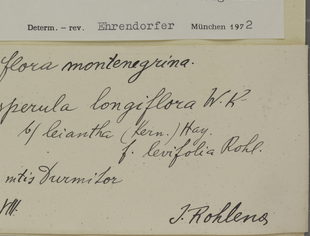 Determ. – rev. Ehrendorfer München 1972
flora montenegrina.
sperula longiflora W. K.
b/ leiantha (Kern.) Hay.
f. levifolia Rohl.
ntis Durmitor
VIII.
J. Rohlena